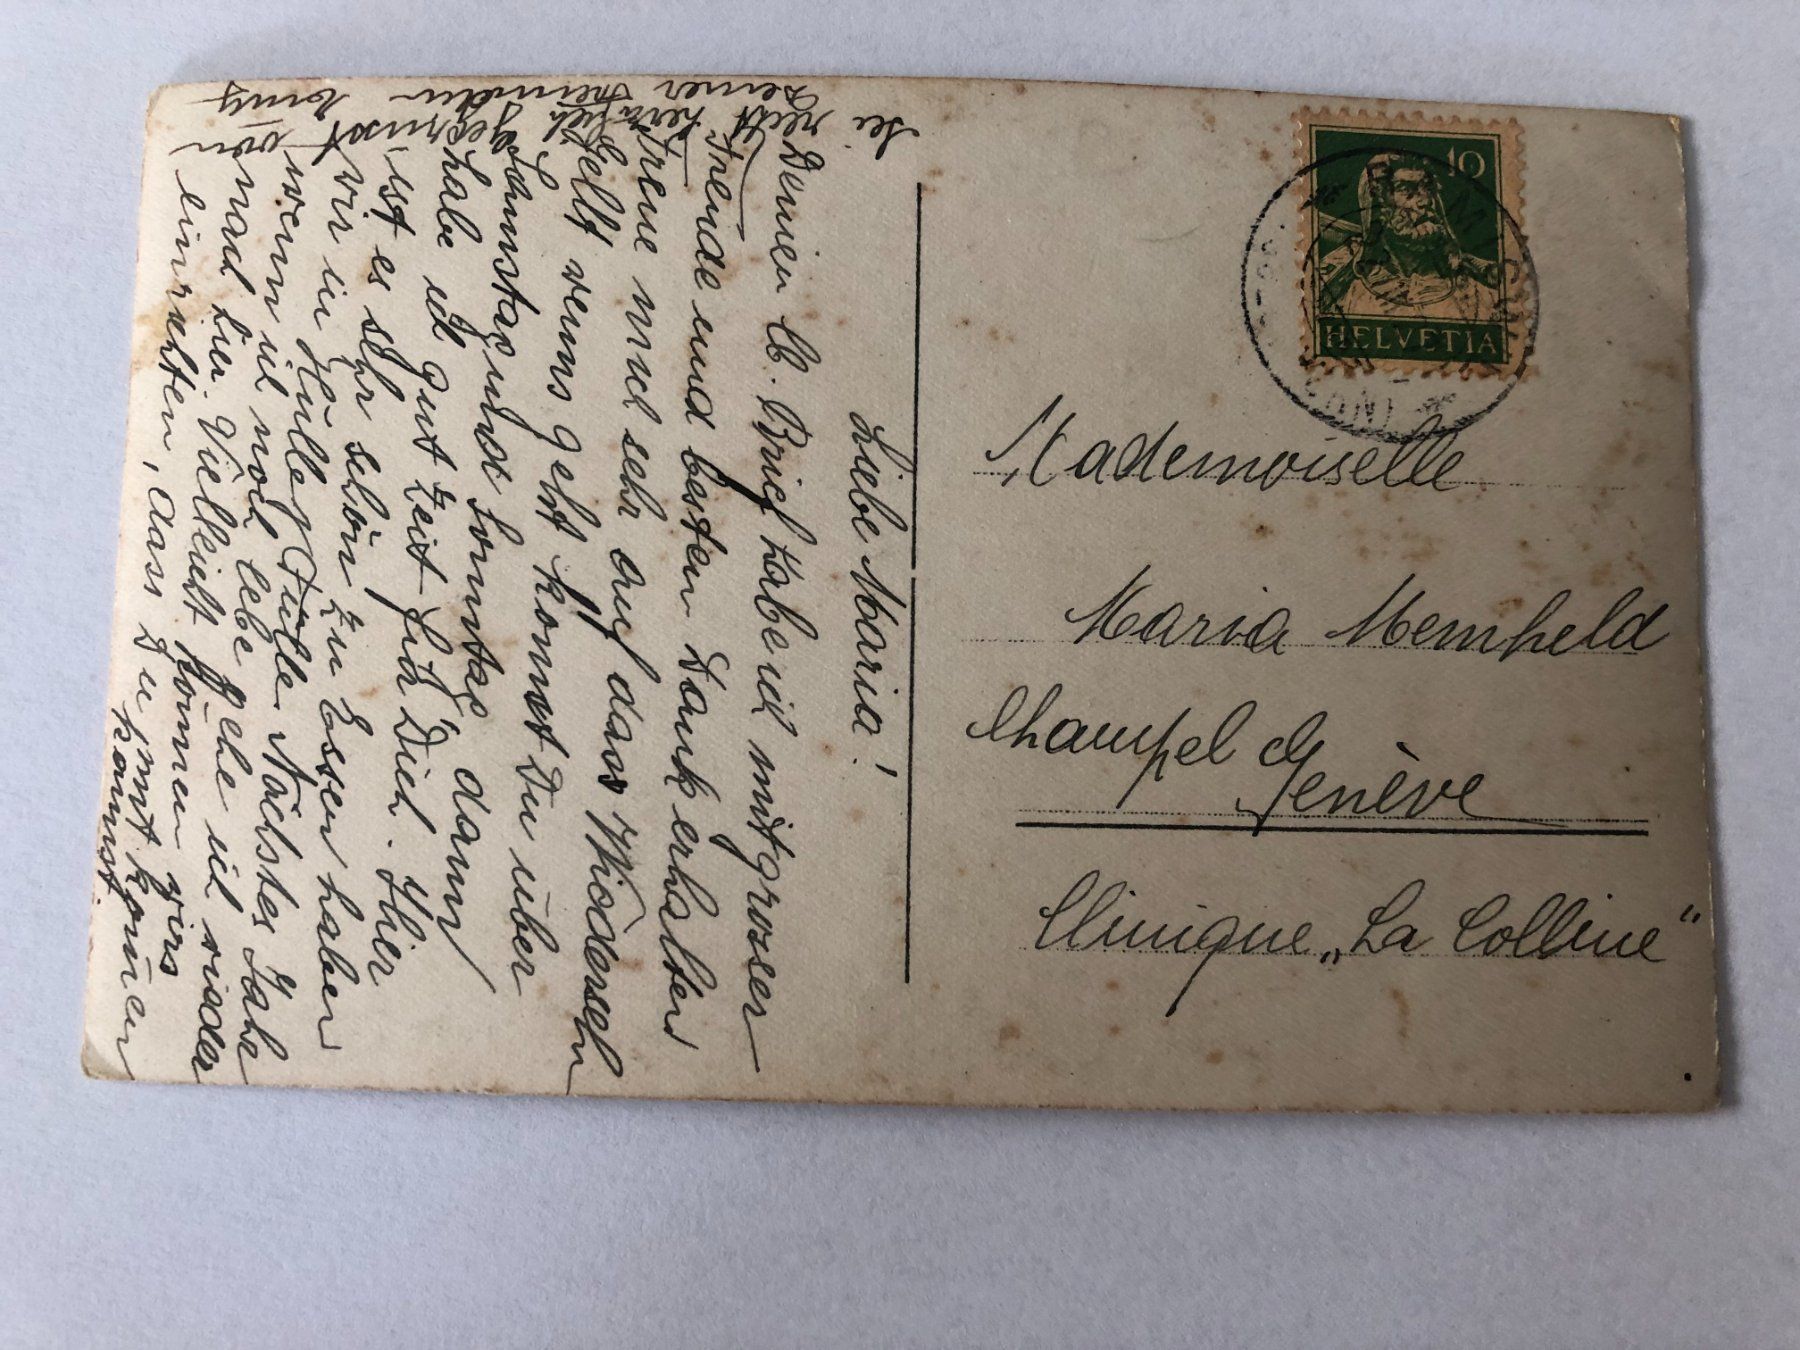 Liebe Maria!
Deinen lb. Brief habe ich mit grosser
Freude und besten Dank erhalten
Freue mich sehr auf das Wiedersehn
Gelt wenns geht komst Du über
Samstag und Sonntag dann
habe ich gut Zeit für Dich. Hier
ist es sehr schön zu Essen haben
wir in Hülle, Fülle. Nächstes Jahr
wenn ich noch lebe gehe ich wieder
nach hier. Vielleicht können wirs
einrichten, dass Du mit komen
kannst.
Sei recht herzlich gegrüsst von
Deiner Freundin
10
HELVETIA
Mademoiselle
Maria Memfeld
Champel Genève
Clinique „La Colline"